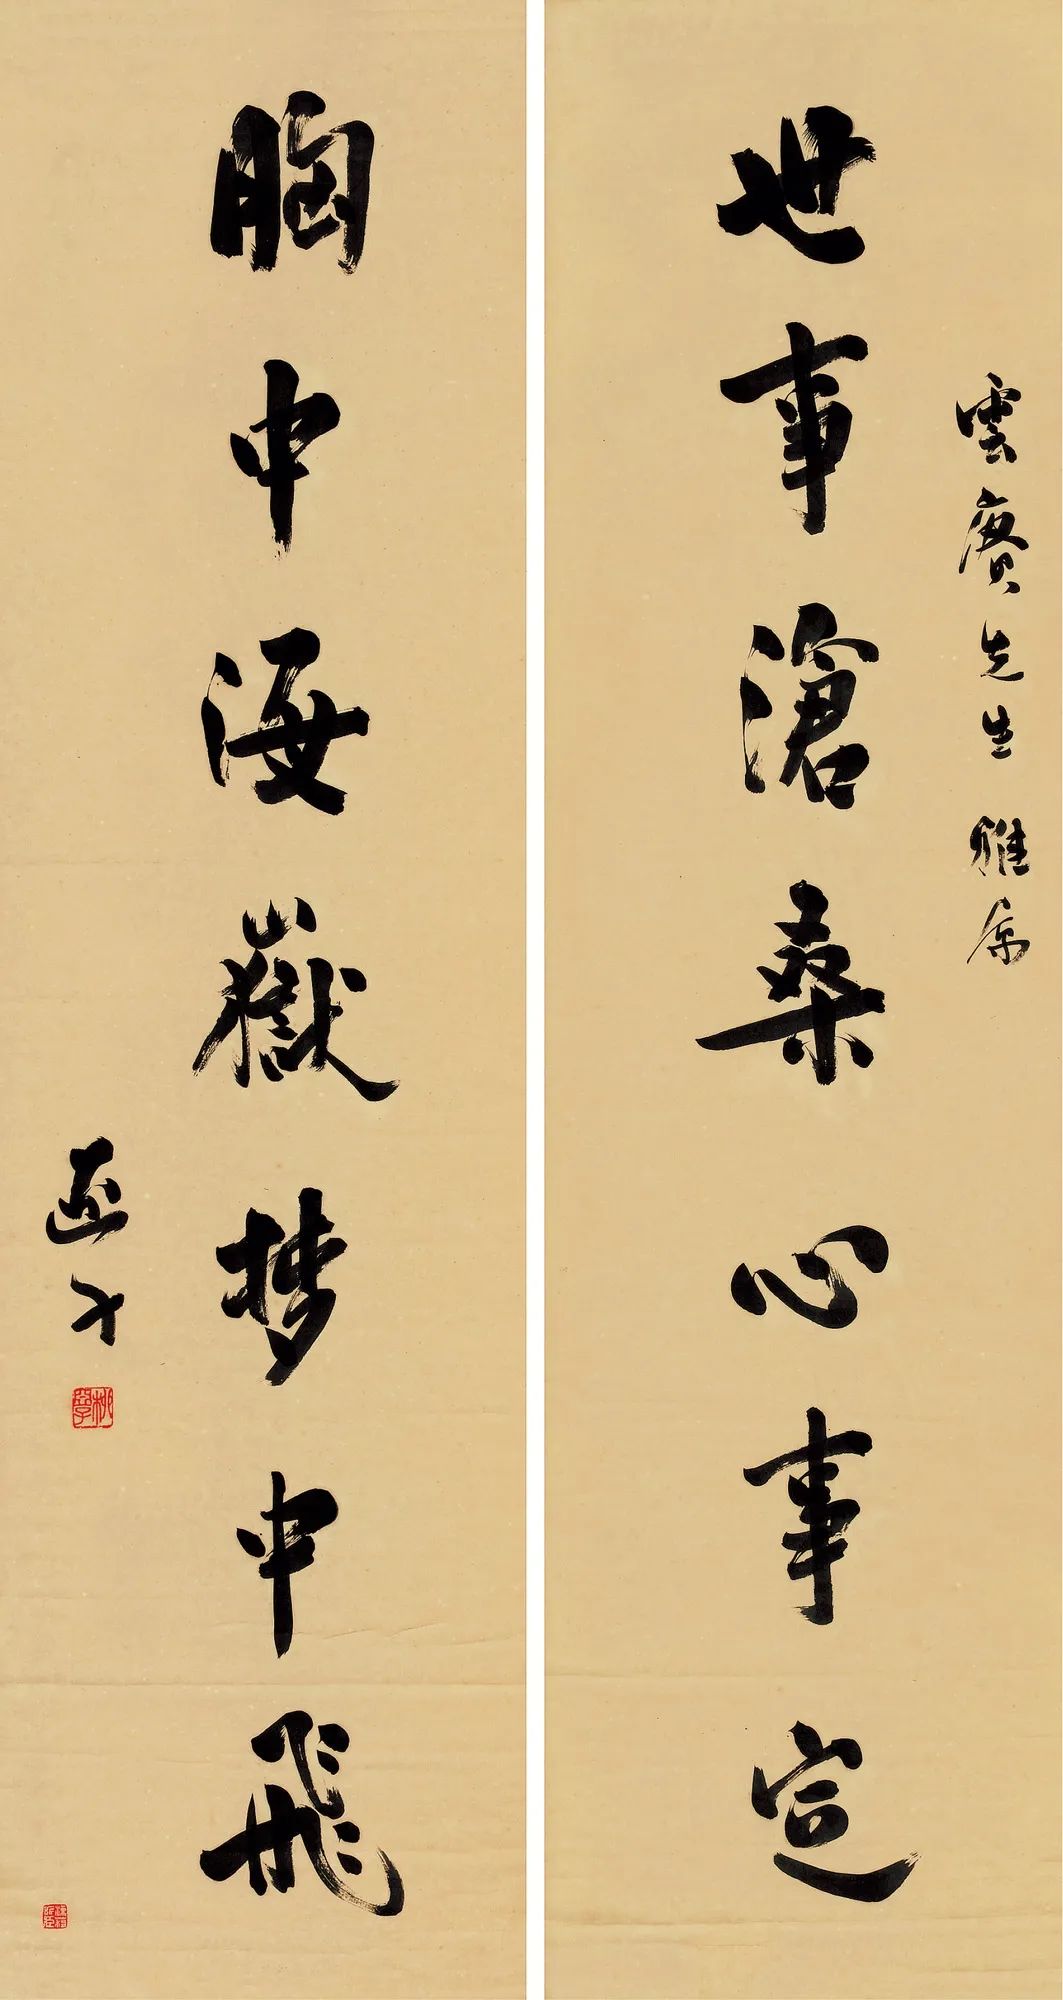 雲賡先生雅屬
世事滄桑心事定
胸中海嶽梦中飛